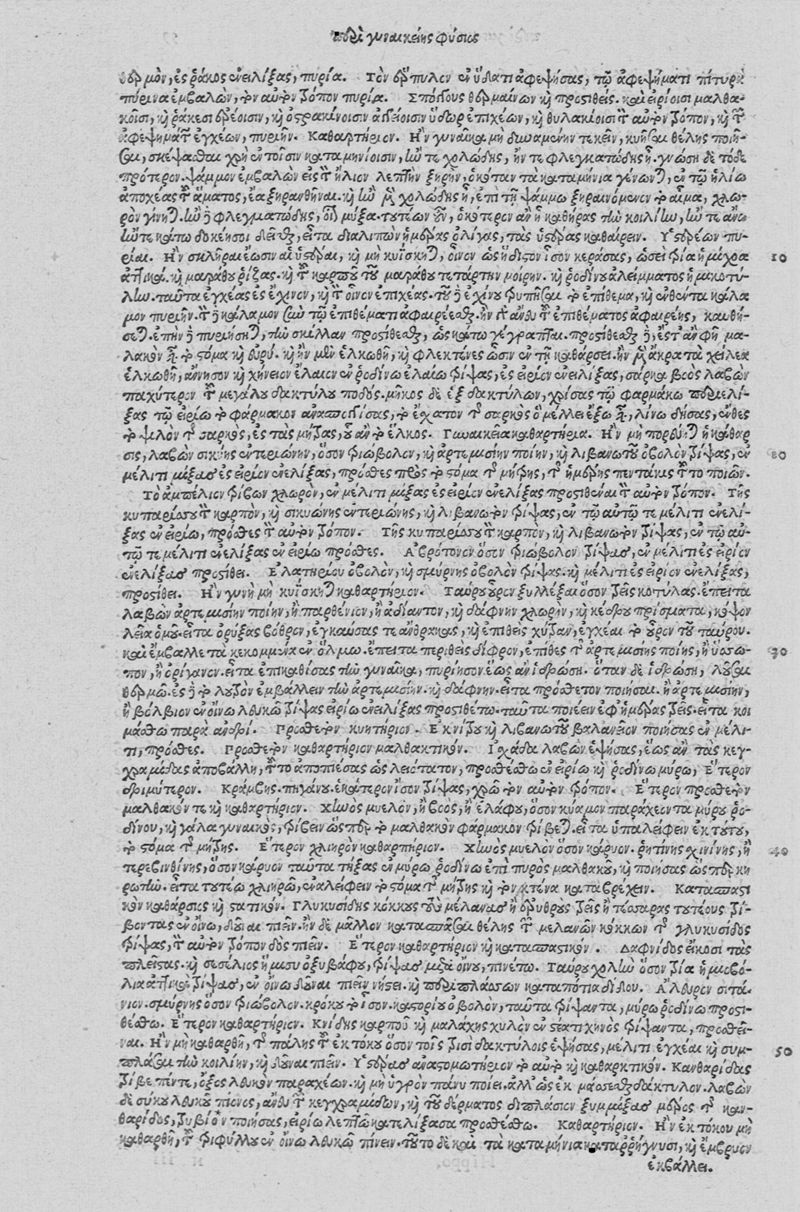 περὶ γυναικείης φύσιος
θερμὸν, ἐς ῥάκος ἐνειλίξας, πυρία. Τὸν ὕδατι ἀφεψήσας, τῷ ἀφεψήματι πίτυρα
πύρινα ἐμβαλὼν, τὸν αὐτὸν τρόπον πυρία. Σπόγγους θερμαίνων καὶ προστιθείς. καὶ εἰρίοισι μαλθα-
κοῖσι, καὶ ῥάκεσι καὶ ὀστρακίνοισιν ἀγγείοισιν ὕδωρ ἐπιχέων, καὶ θυλακίοισι τὸν αὐτὸν τρόπον, καὶ τοῦ
ἀφεψήματος ἐγχέων, πυριῆν. Καθαρτήριον. Ἢν γυναῖκα μὴ δυναμένην τεκεῖν, κυῆσαι θέλῃς ποιῆ-
σαι, σκέψασθαι χρὴ ἐν τοῖσιν καταμηνίοισιν, ἤν τε χολώδης, ἤν τε φλεγματώδης ᾖ. γνώσῃ δὲ τόδε
πρότερον. ψάμμον ἐμβαλὼν εἰς τὸν ἥλιον λεπτὴν ξηρὴν, ὁκόταν τὰ καταμήνια γένηται, ἐν τῷ ἡλίῳ
ἀποχέας τοῦ αἵματος, ἔα ξηρανθῆναι. καὶ ἢν μὲν χολώδης ᾖ, ἐπὶ τῇ ψάμμῳ ξηραινόμενον τὸ αἷμα, χλω-
ρὸν γίνεται. ἢν δὲ φλεγματώδης, οἷον μύξα. τουτέων ὁκότερον ἂν ᾖ καθήρας τὴν κοιλίην, ἤν τε ἄνω
ἤν τε κάτω δοκέῃ σοι δεῖσθαι, εἶτα διαλιπὼν ἡμέρας ὀλίγας, τὰς ὑστέρας καθαίρειν. Ὑστερέων πυ-
ρίαι. Ἢν σκληραὶ ἔωσιν αἱ ὑστέραι, καὶ μὴ κυΐσκηται, οἶνον ὡς ἥδιστον ἶσον κεράσας, ὡσεὶ τρία ἡμίχοα 10
ἀττικά. καὶ μαράθου ῥίζας. καὶ τοῦ καρποῦ τοῦ μαράθου τετάρτην μοίρην. καὶ ῥοδίνου ἀλείμματος ἡμικοτύ-
λιον. ταῦτα ἐγχέας ἐς ἐχῖνον, καὶ τὸν οἶνον ἐπιχέας. τοῦ δὲ ἐχίνου τρυπῆσαι τὸ ἐπίθεμα, καὶ ἐνθέντα κάλα-
μον πυριῆν. τὸν δὲ κάλαμον ξὺν τῷ ἐπιθέματι ἀφαιρέεσθαι.
λακὸν ᾖ τὸ στόμα καὶ εὐρύ. καὶ ἢν μὲν ἑλκωθῇ, καὶ φλεκτένες ὦσιν ἐν τῇ καθάρσει. ἢν δὲ ἄκρα τὰ χείλεα
ἑλκωθῇ, ἄννησον καὶ χήνειον ἔλαιον ἐν ῥοδίνῳ ἐλαίῳ τρίψας, ἐς εἰρίον ἐνειλίξας, σάρκα βοὸς λαβὼν
παχύτερον τοῦ μεγάλου δακτύλου ποδός. μῆκος δὲ ἓξ δακτύλων, χρίσας τῷ φαρμάκῳ περιελί-
ξας τῷ εἰρίῳ τὸ φάρμακον ἀνασπογγίσας, τὸ ἔσχατον τῆς σαρκὸς ὃ μέλλει ἔξω εἶναι, λίνῳ δήσας, ἔνθες
τὸ ψιλὸν τῆς σαρκὸς, ἐς τὰς μήτρας, οὗ ἂν τὸ ἕλκος. Γυναικεῖα καθαρτήρια. Ἢν μὴ πορεύηται ἡ κάθαρ-
σις, λαβὼν σικύης ἐντεριώνην, ὅσον τριώβολον, καὶ ἀρτεμισίην ποίην, καὶ λιβανωτοῦ ὀβολὸν τρίψας, ἐν 20
μέλιτι μίξας ἐς εἰρίον ἐνελίξας, πρόσθες πρὸς τὸ στόμα τῆς μήτρης, τῆς ἡμέρης πεντάκις τοῦτο ποιῶν.
Τὸ ἀμπέλιον τρίβων χλωρὸν, ἐν μέλιτι μίξας ἐς εἰρίον ἐνελίξας προστιθέναι τὸν αὐτὸν τρόπον. Τῆς
κυπαρίσσου τὸν καρπὸν, καὶ σικυώνης ἐντεριώνης, καὶ λιβανωτὸν τρίψας, ἐν τῷ αὐτῷ τε μέλιτι ἐνελί-
ξας ἐν εἰρίῳ, πρόσθες τὸν αὐτὸν τρόπον. Τῆς κυπαρίσσου τὸν καρπὸν, καὶ λιβανωτὸν τρίψας, ἐν τῷ αὐ-
τῷ τε μέλιτι ἐνελίξας ἐν εἰρίῳ πρόσθες. Ἀβρότονον ὅσον τριώβολον τρίψας, ἐν μέλιτι ἐς εἰρίον
ἐνελίξας προστίθει. Ἐλατηρίου ὀβολὸν, καὶ σμύρνης ὀβολὸν τρίψας. καὶ μέλιτι ἐς εἰρίον ἐνελίξας,
προστίθει. Ἢν γυνὴ μὴ κυΐσκηται καθαρτήριον. Ταύρου οὖρον ξυλλέξαι ὅσον τρεῖς κοτύλας. ἔπειτα
λαβὼν ἀρτεμισίην ποίην, ἢ παρθένιον, ἢ ἀδίαντον, καὶ δάφνην χλωρὴν, καὶ κέδρου πρίσματα, κόψον
λεῖα ὁμοῦ. εἶτα ὀρύξας βόθρον, ἐγκαύσας τε ἄνθρακας, καὶ ἐπιθεὶς χύτραν, ἐγχέαι τὸ οὖρον τοῦ ταύρου.
καὶ ἐμβάλλε τὰ κεκομμένα ἐν ὅλμῳ. ἔπειτα περιθεὶς δίφρον, ἐπίθες τῆς ἀρτεμισίης ποίης, ἢ ὕσσω- 30
πον, ἢ ὀρίγανον. εἶτα ἐπικαθίσας τὴν γυναῖκα, πυρίησον ἕως ἂν ἱδρώσῃ. ὅταν δὲ ἱδρώσῃ, λοῦσαι
θερμῷ. ἐς δὲ τὸ λουτρὸν ἐμβάλλειν τὴν ἀρτεμισίην. καὶ δάφνην. εἶτα πρόσθετον ποιῆσαι. ἢ ἀρτεμισίην,
ἢ βόλβιον ἐν οἴνῳ λευκῷ τρίψας εἰρίῳ ἐνειλίξας προστιθέτω. ταῦτα ποιέειν ἐφ᾽ ἡμέρας τρεῖς. εἶτα κοι-
μάσθω παρὰ ἀνδρί. Πρόσθετον κυητήριον. Ἐκ νίτρου καὶ λιβανωτοῦ βαλάνειον ποιήσας ἐν μέλι-
τι, πρόσθες. Πρόσθετον καθαρτήριον μαλθακτικόν. Ἰσχάδα λαβὼν ἑψήσας, ἕως ἂν τὰς κεγ-
χραμίδας ἀποβάλλῃ, τοῦτο ἀποπιέσας ὡς λειότατον, προσθέσθω ἐν εἰρίῳ καὶ ῥοδίνῳ μύρῳ. Ἕτερον
δριμύτερον. Κράμβης, πηγάνου, ἑκατέρου ἶσον τρίψας, χρῶ τὸν αὐτὸν τρόπον. Ἕτερον πρόσθετον
μαλθακόν τε καὶ καθαρτήριον. Χηνὸς μυελὸν, ἢ βοὸς, ἢ ἐλάφου, ὅσον κύαμον παραχέοντα μύρου ῥο-
δίνου, καὶ γάλα γυναικὸς, τρίβειν ὥσπερ τὸ μαλθακὸν φάρμακον τρίβεται. εἶτα ὑπαλείφειν ἐκ τούτου,
τὸ στόμα τῆς μήτρης. Ἕτερον χλιηρὸν καθαρτήριον. Χηνὸς μυελὸν ὅσον κάρυον. ῥητίνης σχινίνης, ἢ 40
τερεβινθίνης, ὅσον κάρυον ταῦτα τήξας ἐν μύρῳ ῥοδίνῳ ἐπὶ πυρὸς μαλθακοῦ, καὶ ποιήσας ὥσπερ κη-
ρωτήν. εἶτα τουτέῳ χλιηρῷ, ἐναλείφειν τὸ στόμα τῆς μήτρης καὶ τὸν κτένα καταβρέχειν. Καταποτὶ
κὸν καθάρσιος καὶ στατικόν. Γλυκυσίδης κόκκους τοὺς μέλανας ἢ ἐρυθροὺς τρεῖς ἢ τέσσαρας τουτέους τρί-
βοντας ἐν οἴνῳ, δοῦναι πιεῖν. ἢν δὲ μᾶλλον κατασπάσαι θέλῃς τῶν μελανῶν κόκκων τῆς γλυκυσίδης
τρίψας, τὸν αὐτὸν τρόπον δὸς πιεῖν. Ἕτερον καθαρτήριον καὶ κατασπαστικόν. Δαφνίδος εἴκοσι τὰς
πλείστας. καὶ σεσέλιος ἥμισυ ὀξυβάφου, τρίψας μετὰ οἴνου, πινέτω. Ταύρου χολὴν ὅσον τρία ἡμιωβό-
λια ἀττικὰ τρίψας, ἐν οἴνῳ δοῦναι πιεῖν νήστει. καὶ περιπλάσσων καταπότια δίδου. Ἄλευρον σιτά-
νιον. σμύρνης ὅσον τριώβολον. κρόκου τὸ ἶσον. καστορίου ὀβολὸν, ταῦτα τρίψαντα, μύρῳ ῥοδίνῳ προστι-
θέσθω. Ἕτερον καθαρτήριον. Κνίδης καρποῦ καὶ μαλάχης χυλὸν ἐν στέατι χηνὸς τρίψαντα, προσθεῖ-
ναι. Ἢν μὴ καθαρθῇ, τῆς πάλης τοῦ ἐκ τόκου ὅσον τοῖς τρισὶ δακτύλοις ἑψήσας, μέλιτι ἐγχέαι καὶ συμ- 50
πλάσαι τὴν κοιλίην, καὶ δοῦναι πιεῖν. Ὑστέρας ἀναστομωτήριον τὸ αὐτὸ καὶ καθαρκτικόν. Κανθαρίδας
τρίβε πέντε, ὄξος λευκὸν παραχέων. καὶ μὴ ὑγρὸν πάνυ ποίει.
δὲ σύκου λευκοῦ πίονος, ἄνευ τῶν κεγχραμίδων, καὶ τοῦ δέρματος διπλάσιον ξυμμίξας μέρος τῆς καν-
θαρίδος, ποιήσας, εἰρίῳ λεπτῷ κατελίξασα προσθέσθω. Καθαρτήριον. Ἢν ἐκ τόκου μὴ
καθαρθῇ, τοῦ τριφύλλου ἐν οἴνῳ λευκῷ πίνειν. τοῦτο δὲ καὶ τὰ καταμήνια καταῤῥήγνυσι, καὶ ἔμβρυον
ἐκβάλλει.